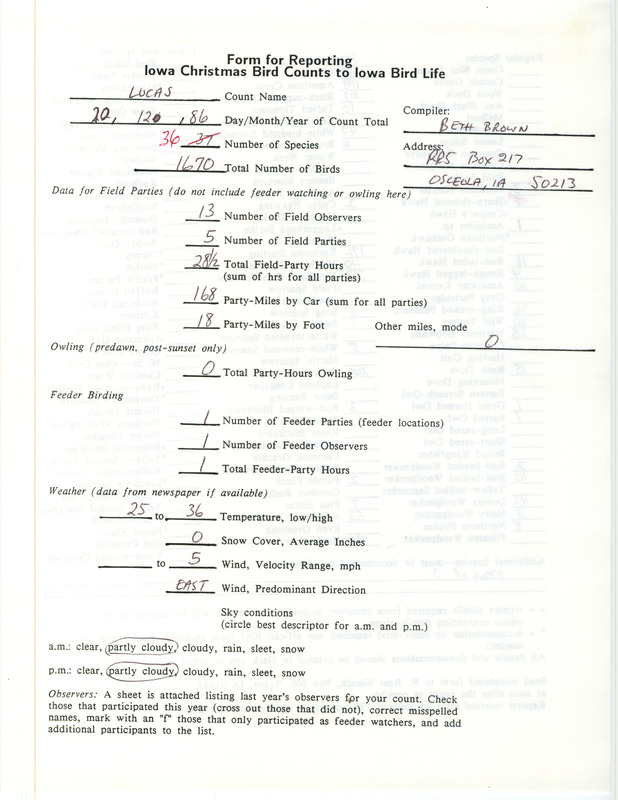 Form for Reporting
Iowa Christmas Bird Counts to Iowa Bird Life
LUCAS Count Name
20, 12, 86 Day/Month/Year of Count Total
Compiler:
BETH BROWN
36 37 Number of Species
Address:
RR5 Box 217
1670 Total Number of Birds
OSCEOLA, IA 50213
Data for Field Parties (do not include feeder watching or owling here)
13 Number of Field Observers
5 Number of Field Parties
28 1/2 Total Field-Party Hours
(sum of hrs for all parties)
168 Party-Miles by Car (sum for all parties)
18 Party-Miles by Foot Other miles, mode
0
Owling (predawn, post-sunset only)
0 Total Party-Hours Owling
Feeder Birding
1 Number of Feeder Parties (feeder locations)
1 Number of Feeder Observers
1 Total Feeder-Party Hours
Weather (data from newspaper if available)
25 to 36 Temperature, low/high
0 Snow Cover, Average Inches
to 5 Wind, Velocity Range, mph
EAST Wind, Predominant Direction
Sky conditions
(circle best descriptor for a.m. and p.m.)
a.m.: clear, partly cloudy, cloudy, rain, sleet, snow
p.m.: clear, partly cloudy, cloudy, rain, sleet, snow
Observers: A sheet is attached listing last year's observers for your count. Check
those that participated this year (cross out those that did not), correct misspelled
names, mark with an "f" those that only participated as feeder watchers, and add
additional participants to the list.